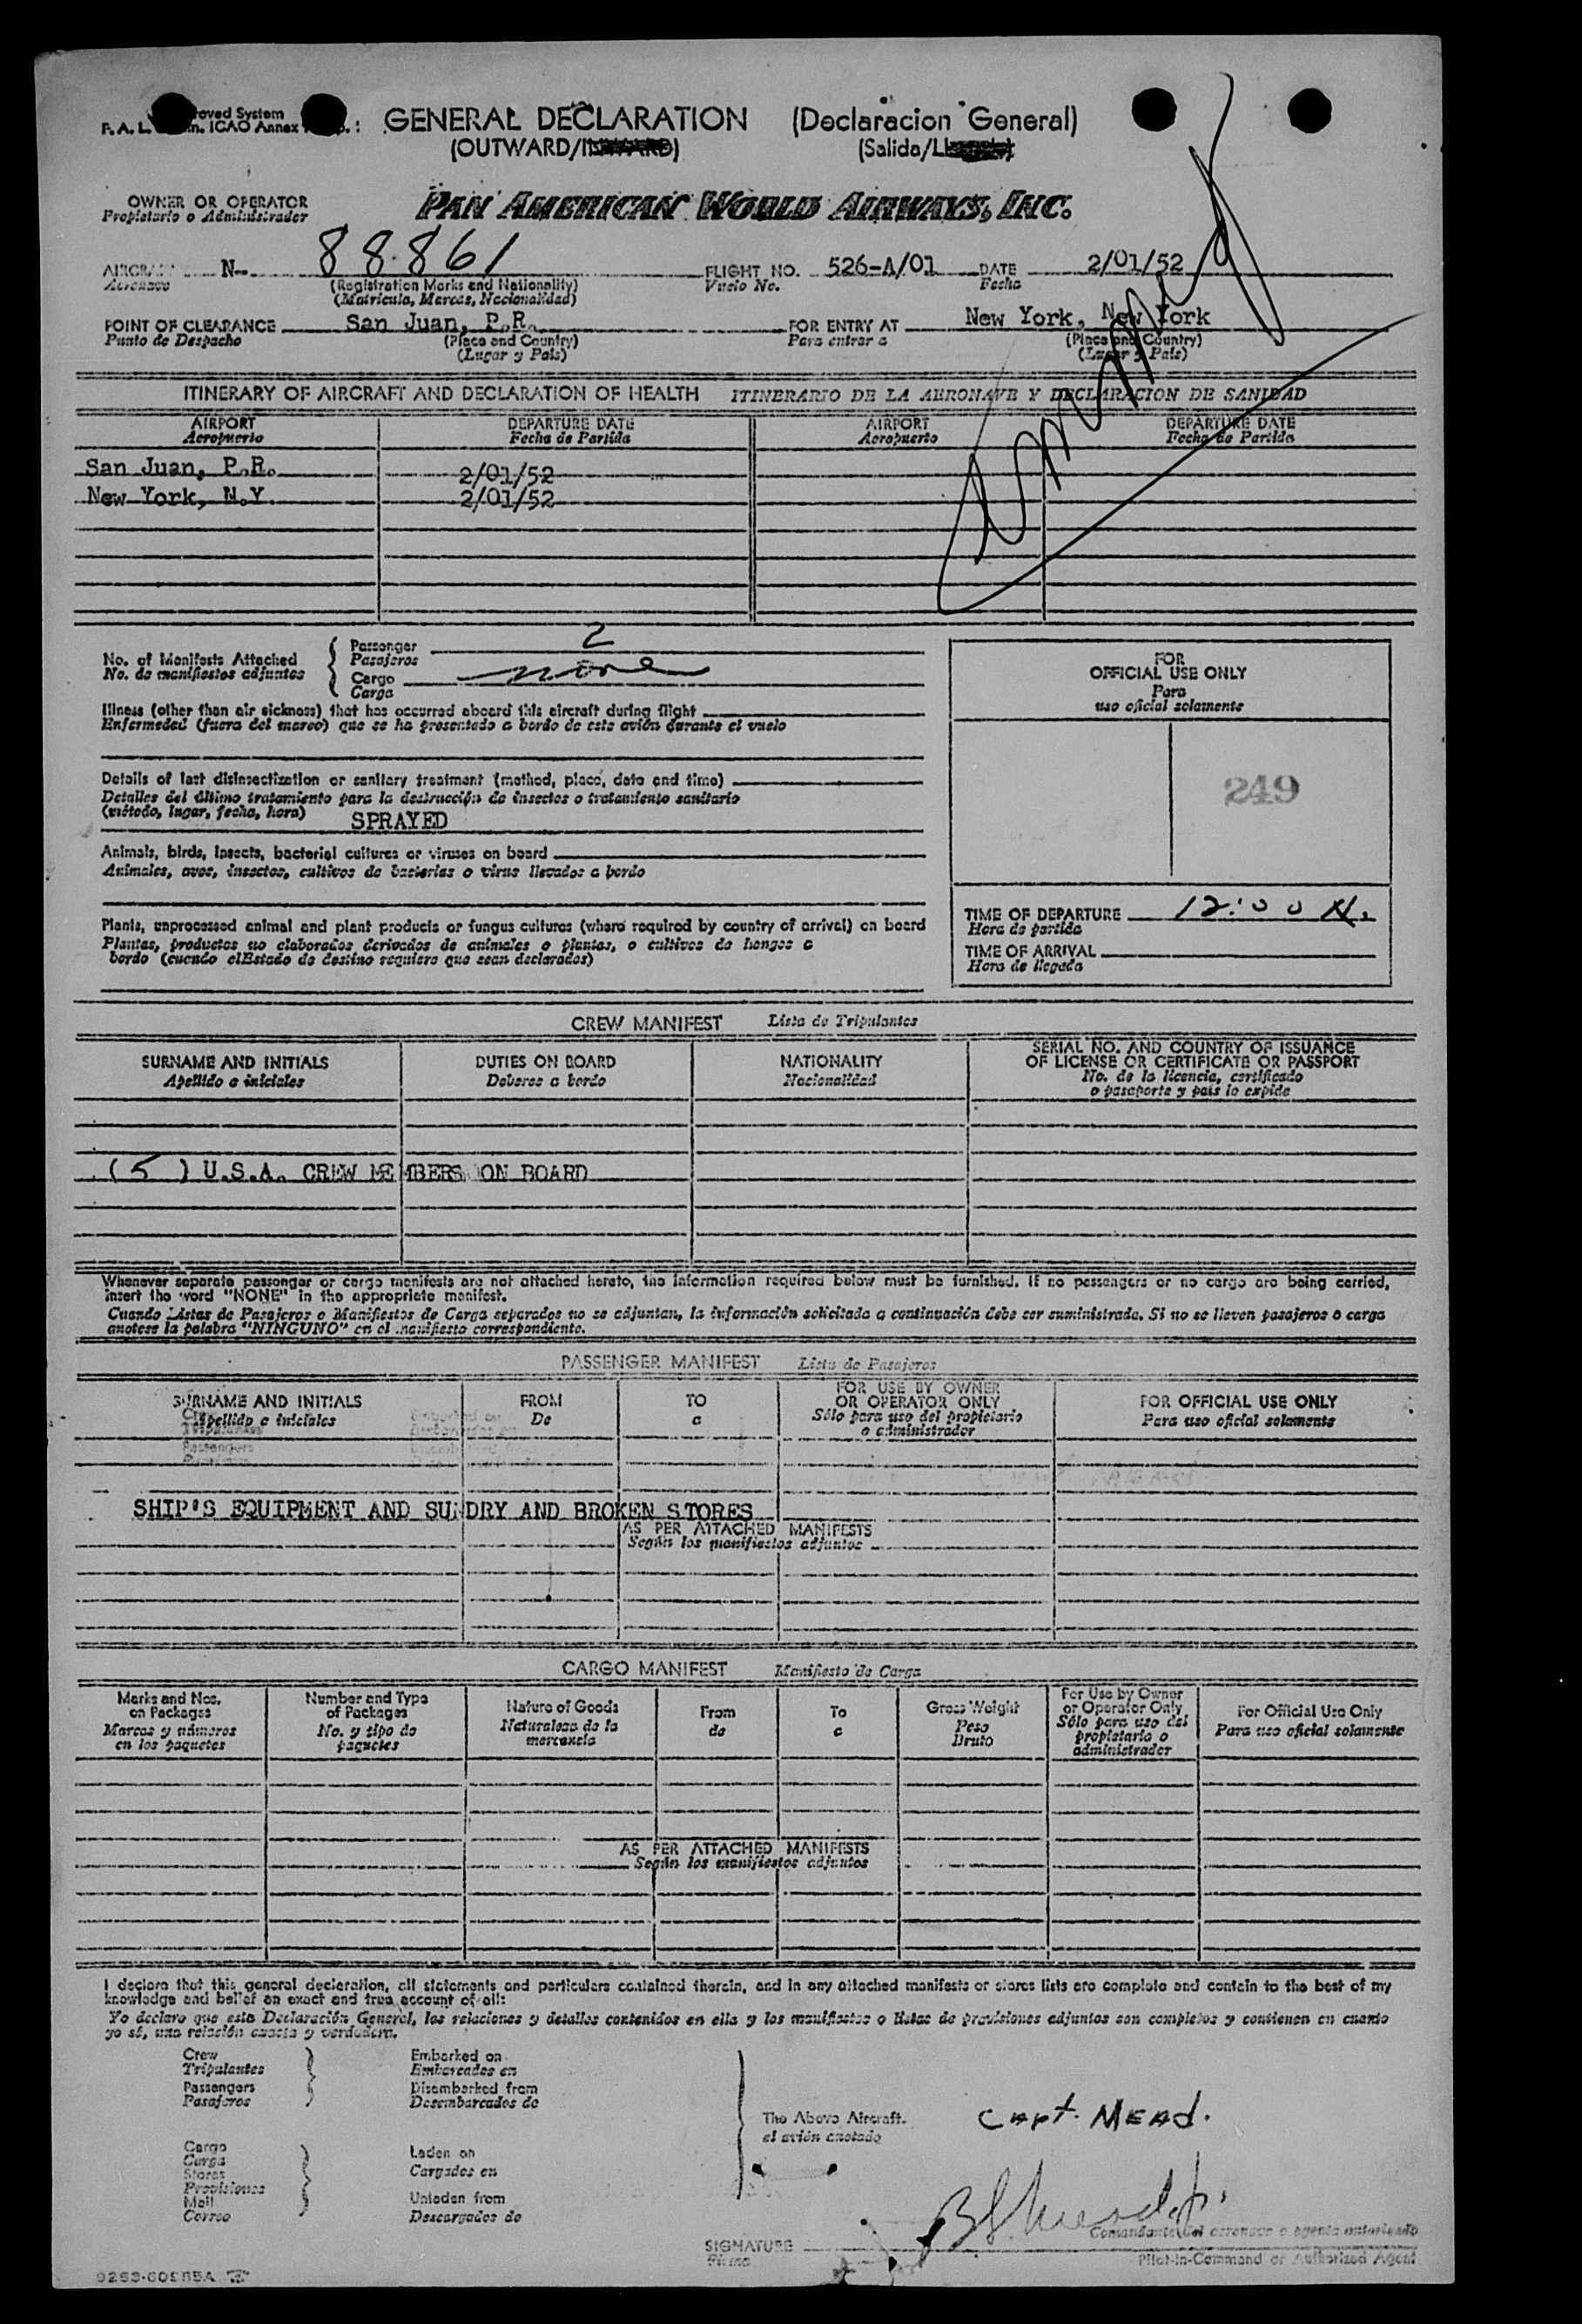 roved System
F. A. L. n. ICAO Annex
GENERAL DECLARATION (Declaracion General)
(OUTWARD/INWARD) (Salida/Ll
OWNER OR OPERATOR
Propietario o Administrador
PAN AMERICAN WORLD AIRWAYS, INC.
AIRCRAFT N- 88861 FLIGHT NO. 526-A/01 DATE 2/01/52
Aeronave (Registration Marks and Nationality) Vuelo No. Fecha
(Matricula, Marcas, Nacionalidad)
POINT OF CLEARANCE San Juan, P.R. FOR ENTRY AT New York, New York
Punto de Despacho (Place and Country) Para entrar a (Place and Country)
(Lugar y País) (Lugar y País)
ITINERARY OF AIRCRAFT AND DECLARATION OF HEALTH ITINERARIO DE LA AERONAVE Y DECLARACION DE SANIDAD
AIRPORT DEPARTURE DATE AIRPORT DEPARTURE DATE
Aeropuerto Fecha de Partida Aeropuerto Fecha de Partida
San Juan, P.R. 2/01/52
New York, N.Y. 2/01/52
No. of Manifests Attached Passenger 2
No. de manifiestos adjuntos Pasajeros
Cargo none
Carga
Illness (other than air sickness) that has occurred aboard this aircraft during flight
Enfermedad (fuera del mareo) que se ha presentado a bordo de este avión durante el vuelo
Details of last disinsectization or sanitary treatment (method, place, date and time)
Detalles del último tratamiento para la destrucción de insectos o tratamiento sanitario
(método, lugar, fecha, hora) SPRAYED
Animals, birds, insects, bacterial cultures or viruses on board
Animales, aves, insectos, cultivos de bacterias o virus llevados a bordo
Plants, unprocessed animal and plant products or fungus cultures (where required by country of arrival) on board
Plantas, productos no elaborados derivados de animales o plantas, o cultivos de hongos a
bordo (cuando el Estado de destino requiere que sean declarados)
FOR
OFFICIAL USE ONLY
Para
uso oficial solamente
249
TIME OF DEPARTURE 12:00 N.
Hora de partida
TIME OF ARRIVAL
Hora de llegada
CREW MANIFEST Lista de Tripulantes
SURNAME AND INITIALS DUTIES ON BOARD NATIONALITY SERIAL NO. AND COUNTRY OF ISSUANCE
Apellido e iniciales Deberes a bordo Nacionalidad OF LICENSE OR CERTIFICATE OR PASSPORT
No. de la licencia, certificado
o pasaporte y país lo expide
(5) U.S.A. CREW MEMBERS ON BOARD
Whenever separate passenger or cargo manifests are not attached hereto, the information required below must be furnished. If no passengers or no cargo are being carried,
insert the word "NONE" in the appropriate manifest.
Cuando Listas de Pasajeros o Manifiestos de Carga separados no se adjuntan, la información solicitada a continuación debe ser suministrada. Si no se lleven pasajeros o carga
anotese la palabra "NINGUNO" en el manifiesto correspondiente.
PASSENGER MANIFEST Lista de Pasajeros
SURNAME AND INITIALS FROM TO FOR USE BY OWNER FOR OFFICIAL USE ONLY
Apellido e iniciales De a OR OPERATOR ONLY Para uso oficial solamente
Sólo para uso del propietario
o administrador
SHIP'S EQUIPMENT AND SUNDRY AND BROKEN STORES
AS PER ATTACHED MANIFESTS
Según los manifiestos adjuntos
CARGO MANIFEST Manifiesto de Carga
Marks and Nos. Number and Type Nature of Goods From To Gross Weight For Use by Owner For Official Use Only
on Packages of Packages Naturaleza de la de a Peso or Operator Only Para uso oficial solamente
Marcas y números No. y tipo de mercancia Bruto Sólo para uso del
en los paquetes paquetes propietario o
administrador
AS PER ATTACHED MANIFESTS
Según los manifiestos adjuntos
I declare that this general declaration, all statements and particulars contained therein, and in any attached manifests or stores lists are complete and contain to the best of my
knowledge and belief an exact and true account of all:
Yo declaro que esta Declaración General, las relaciones y detalles contenidos en ella y los manifiestos o listas de provisiones adjuntos son completos y contienen en cuanto
yo sé, una relación exacta y verdadera.
Crew Embarked on
Tripulantes Embarcados en
Passengers Disembarked from
Pasajeros Desembarcados de
The Above Aircraft.
el avión anotado
Capt. Mead.
Cargo Laden on
Carga Cargados en
Stores
Provisiones
Mail Unladen from
Correo Descargados de
Comandante del aeronave o agente autorizado
SIGNATURE
Firma Pilot-in-Command or Authorized Agent